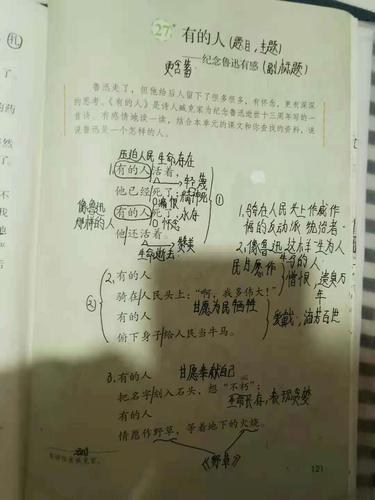 27* 有的人(题目,主题)
——纪念鲁迅有感(副标题)
更含蓄
鲁迅走了,但他给后人留下了很多很多,有怀念,更有深深
的思考。《有的人》是诗人臧克家为纪念鲁迅逝世十三周年写的一
首诗。有感情地读一读,结合本单元的课文和你查找的资料,说
说鲁迅是一个怎样的人。
压迫人民 生命存在
1.有的人活着,
轻蔑
他已经死了;精神死
痛恨
像鲁迅
那样的人
有的人死了 永存
怀念
他还活着。
赞美
生命逝去
①
1.骑在人民头上作威作
福的反动派 统治者
2.像鲁迅 这样一生为人
民
憎恨 遗臭万
年
2.有的人
骑在人民头上:“啊,我多伟大!”
有的人 甘愿为民牺牲
俯下身子给人民当牛马。
②
爱戴 流芳百世
3.有的人 甘愿奉献自己
把名字刻入石头,想“不朽”;
有的人
情愿作野草,等着地下的火烧。
《野草》
121